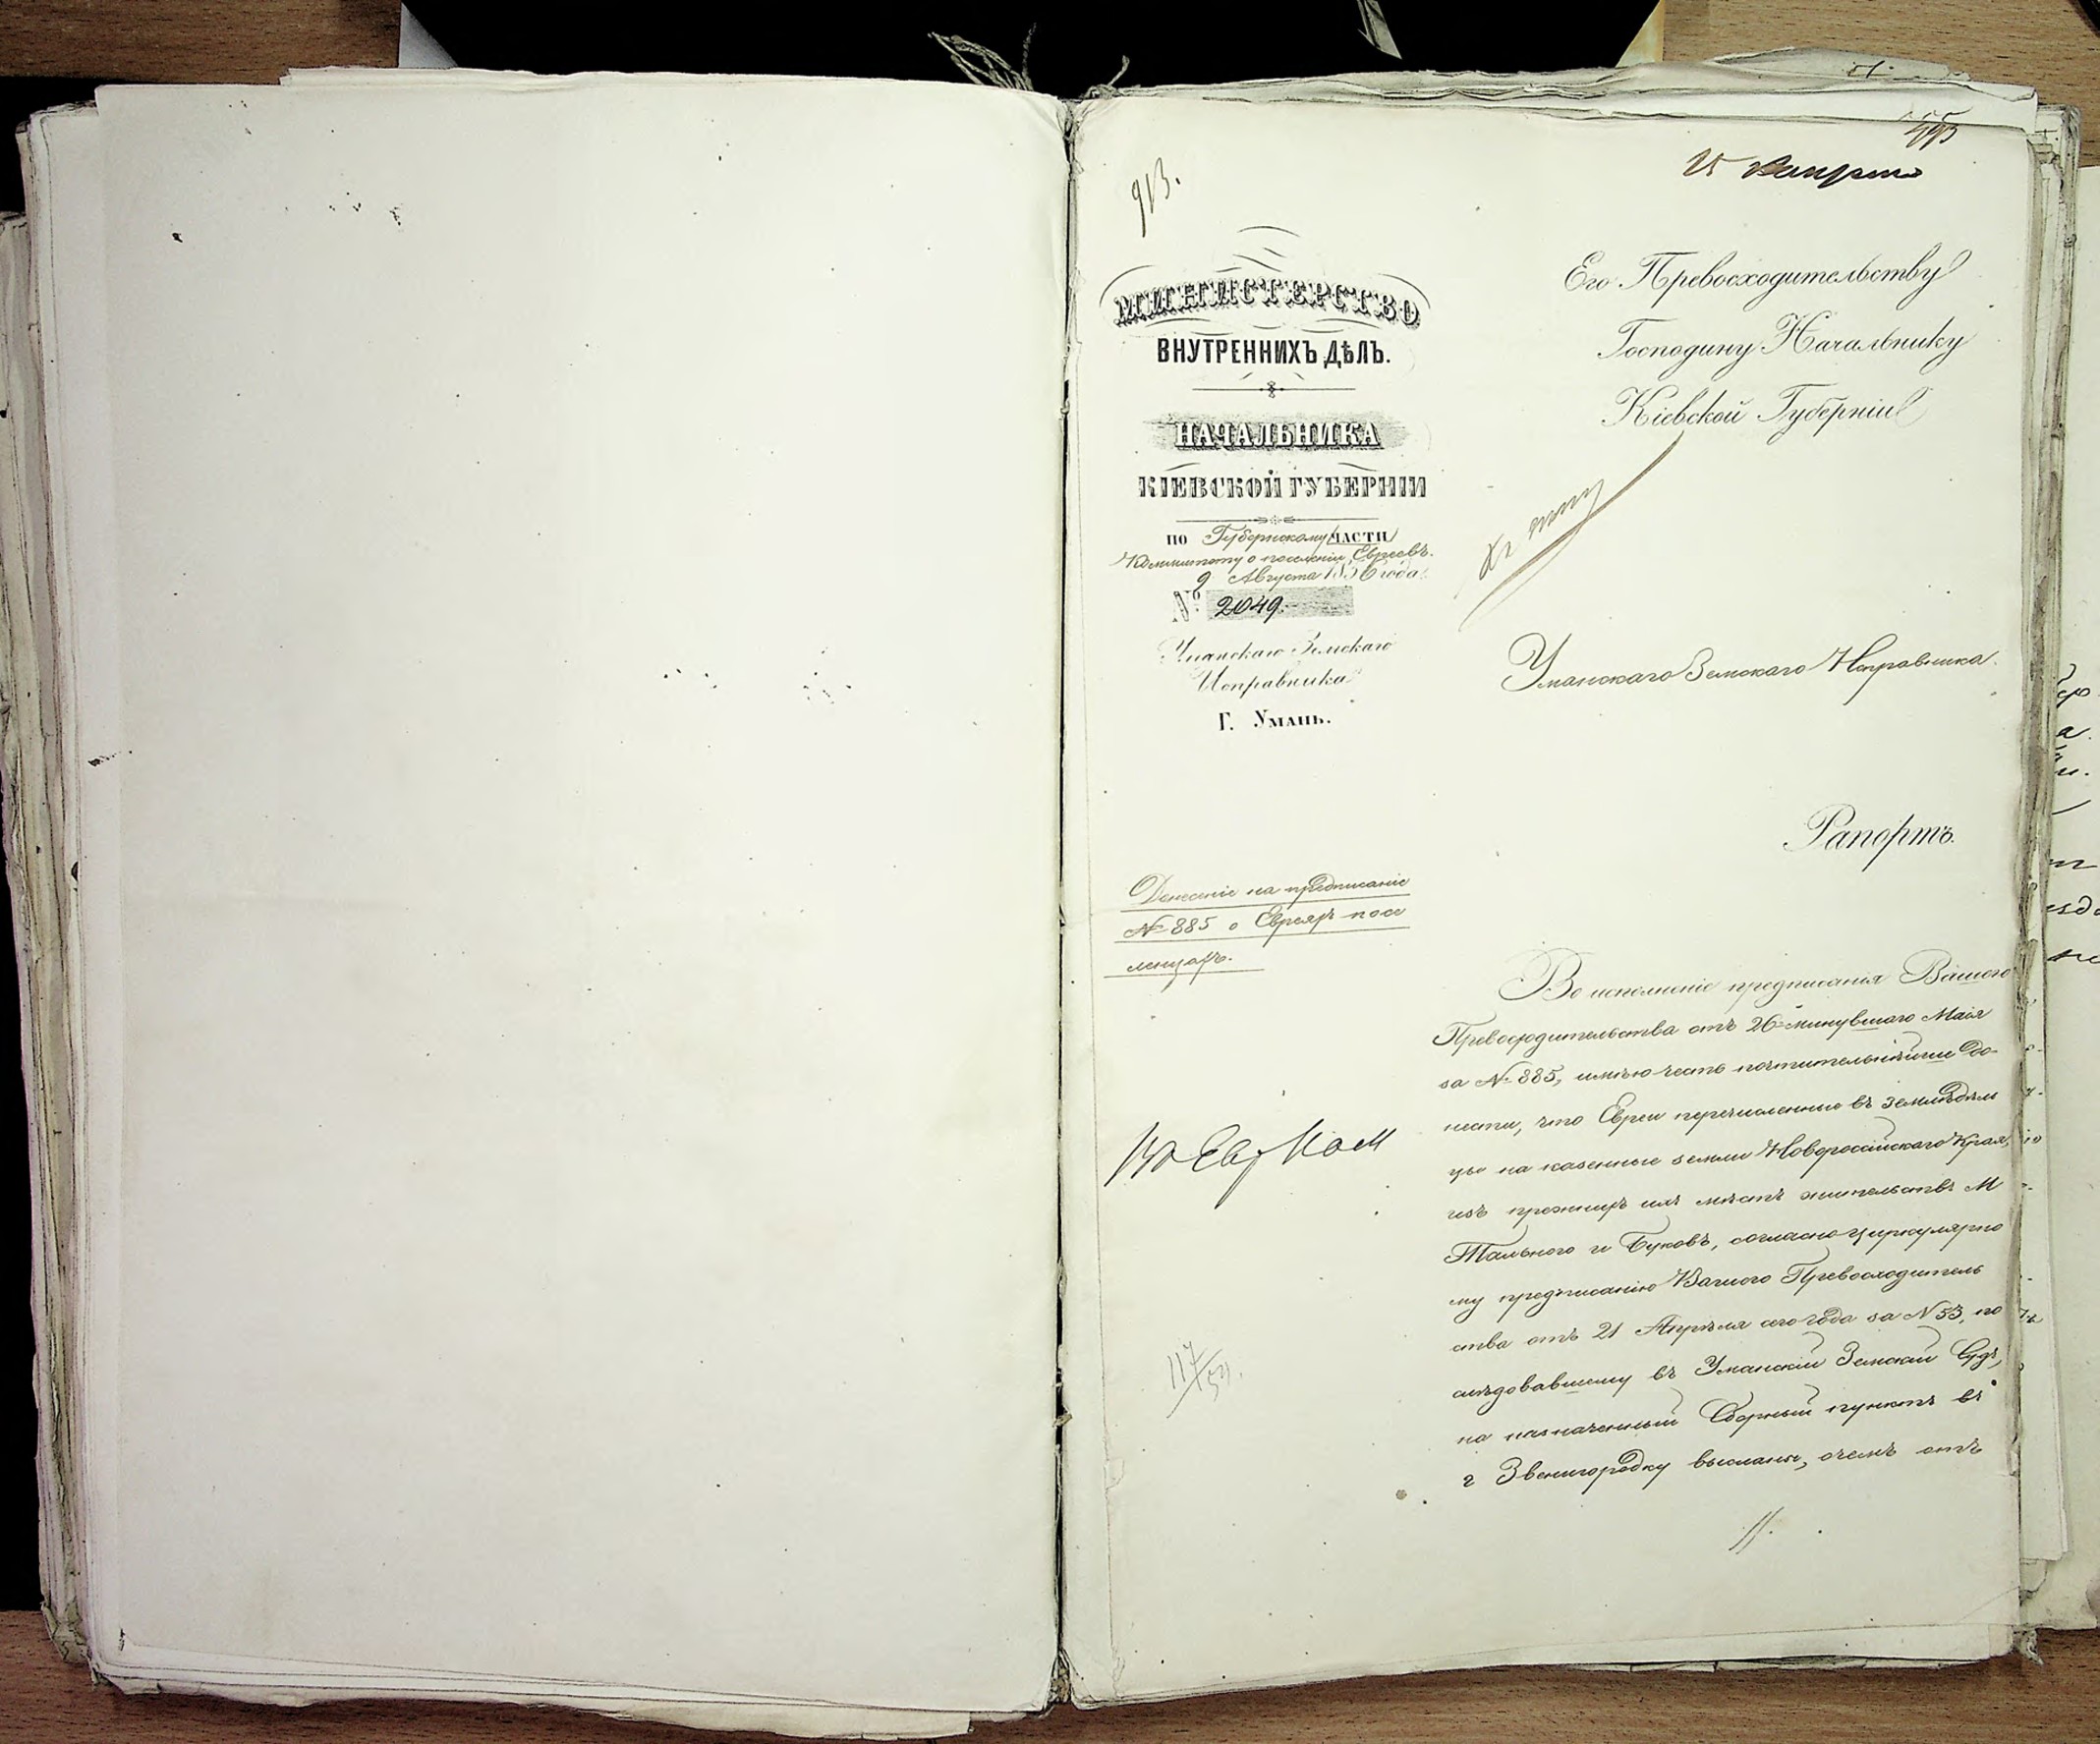 913.
МИНИСТЕРСТВО
ВНУТРЕННИХЪ ДѢЛЪ.
НАЧАЛЬНИКА
КІЕВСКОЙ ГУБЕРНІИ
ПО Губернскому ЧАСТИ
Комитету о поселеніи Евреевъ.
9 Августа 1856 года.
№ 2049.
Уманскаго Земскаго
Исправника
Г. Умань.
Донесеніе на предписаніе
№ 885 о Евреяхъ посе
ленцахъ.
Его Превосходительству
Господину Начальнику
Кіевской Губерніи
Уманскаго Земскаго Исправника.
Рапортъ.
Во исполненіе предписанія Вашего
Превосходительства отъ 26 минувшаго Маія
за № 885, имѣю честь почтительнѣйше до-
нести, что Евреи перечисленные въ земледѣль
цы на казенные земли Новороссійскаго Края,
изъ прежнихъ ихъ мѣстъ жительствъ М
Тального и Буковъ, согласно циркулярно
му предписанію Вашего Превосходитель
ства отъ 21 Апрѣля сего года за № 53, по
слѣдовавшему въ Уманскій Земскій Судъ,
на назначенный Сборный пунктъ въ
г Звенигородку высланы, очемъ отъ